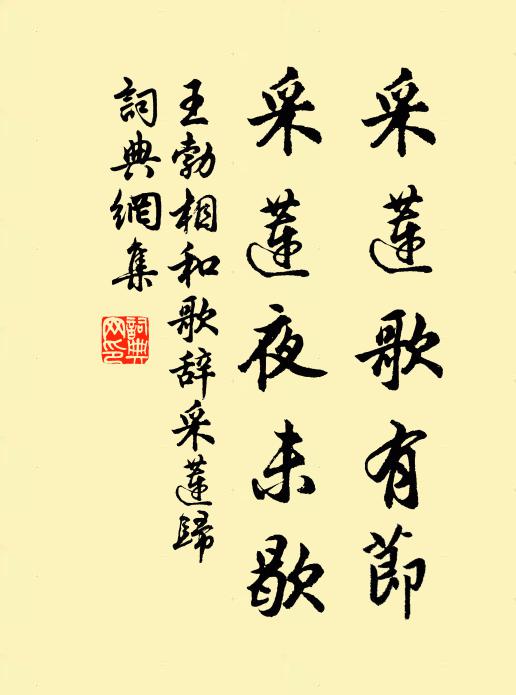 采蓮歌有節
采蓮夜未歇
王勃相和歌辞采蓮歸
詞典網集
詞典网印